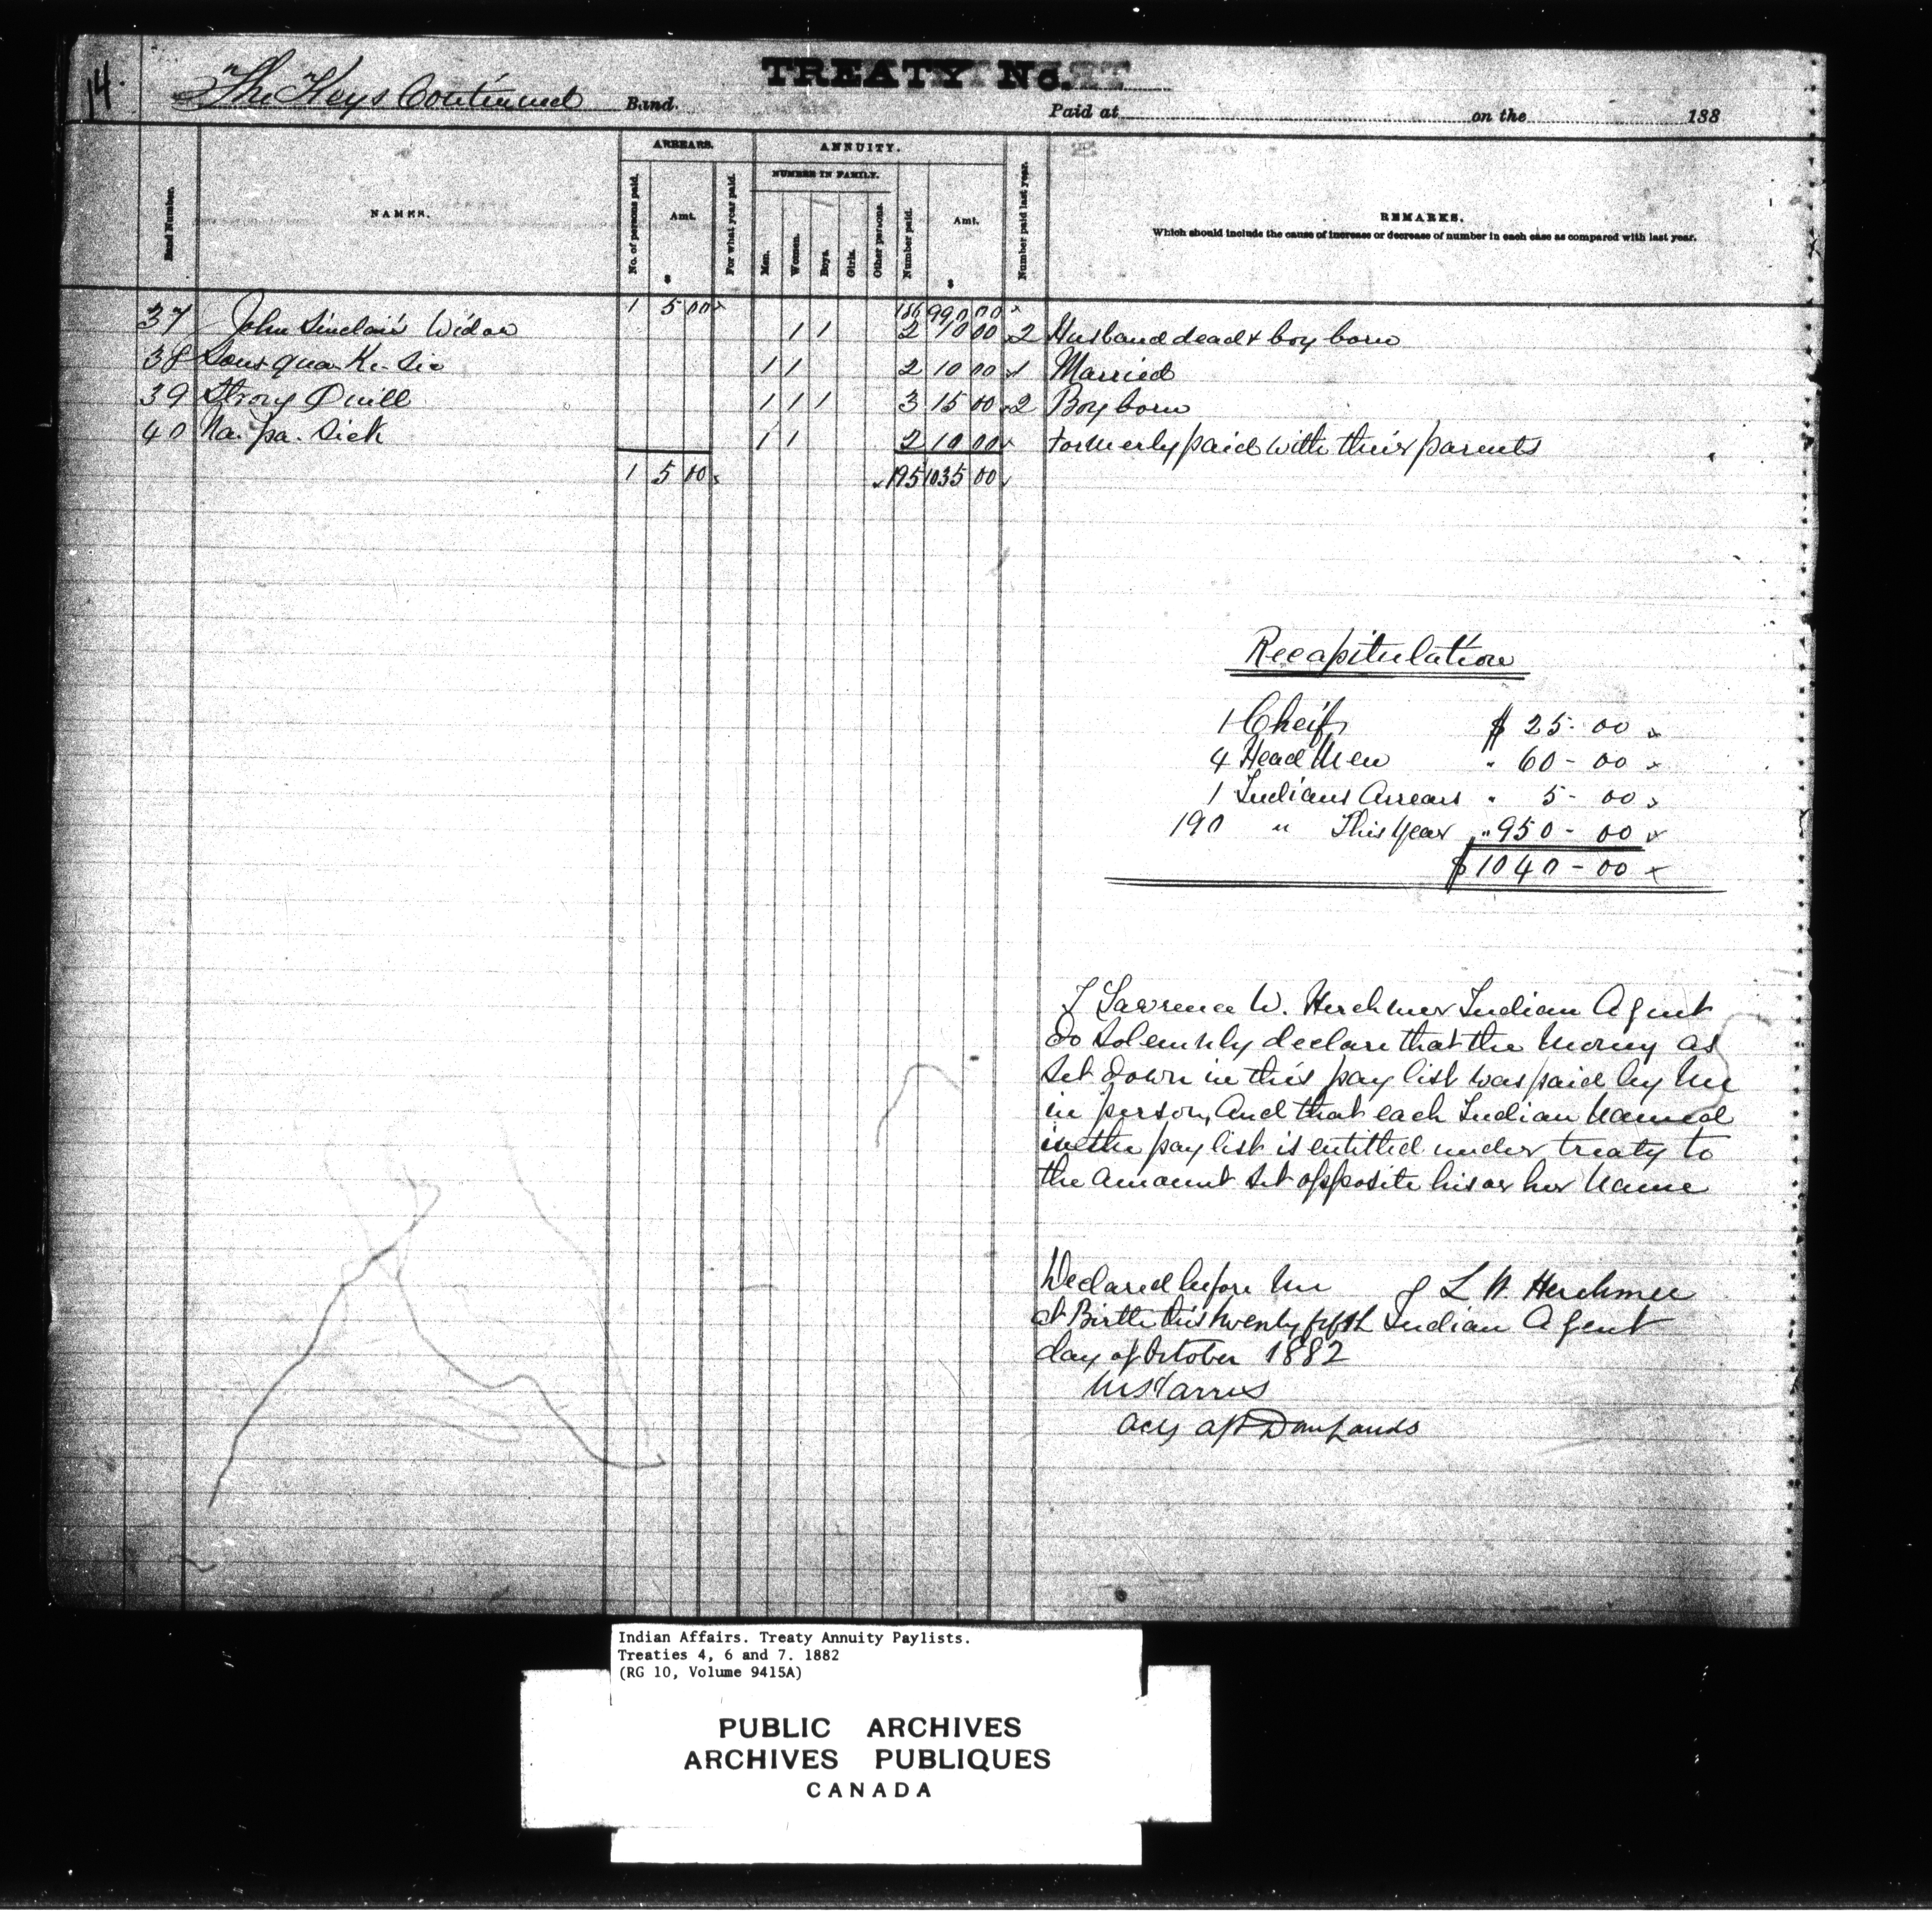 14.
TREATY No.
"The Keys" Continued Band. Paid at on the 188
ARREARS. ANNUITY.
NUMBER IN FAMILY.
Band Number. NAMES. No. of persons paid. Amt. $ For what year paid. Men. Women. Boys. Girls. Other persons. Number paid. Amt. $ Number paid last year. REMARKS.
Which should include the cause of increase or decrease of number in each case as compared with last year.
1 5 00 186 990 00
37 John Sinclair's Widow 1 1 2 10 00 2 Husband dead & boy born
38 Sous qua Ke. sic 1 1 2 10 00 1 Married
39 Strong Quill 1 1 1 3 15 00 2 Boy born
40 Na. pa. sick 1 1 2 10 00 formerly paid with their parents
1 5 00 195 1035 00
Recapitulation
1 Cheif $ 25-00
4 Head Men " 60-00
1 Indians Arrears " 5-00
190 " This Year " 950-00
$1040-00
I Lawrence W. Herchmer Indian Agent
do solemnly declare that the money as
set down in this pay list was paid by me
in person, And that each Indian named
in the pay list is entitled under treaty to
the amount set opposite his or her name
Declared before me L W Herchmer
at Birtle this twenty fifth Indian Agent
day of October 1882
Dom Lands
Indian Affairs. Treaty Annuity Paylists.
Treaties 4, 6 and 7. 1882
(RG 10, Volume 9415A)
PUBLIC ARCHIVES
ARCHIVES PUBLIQUES
CANADA